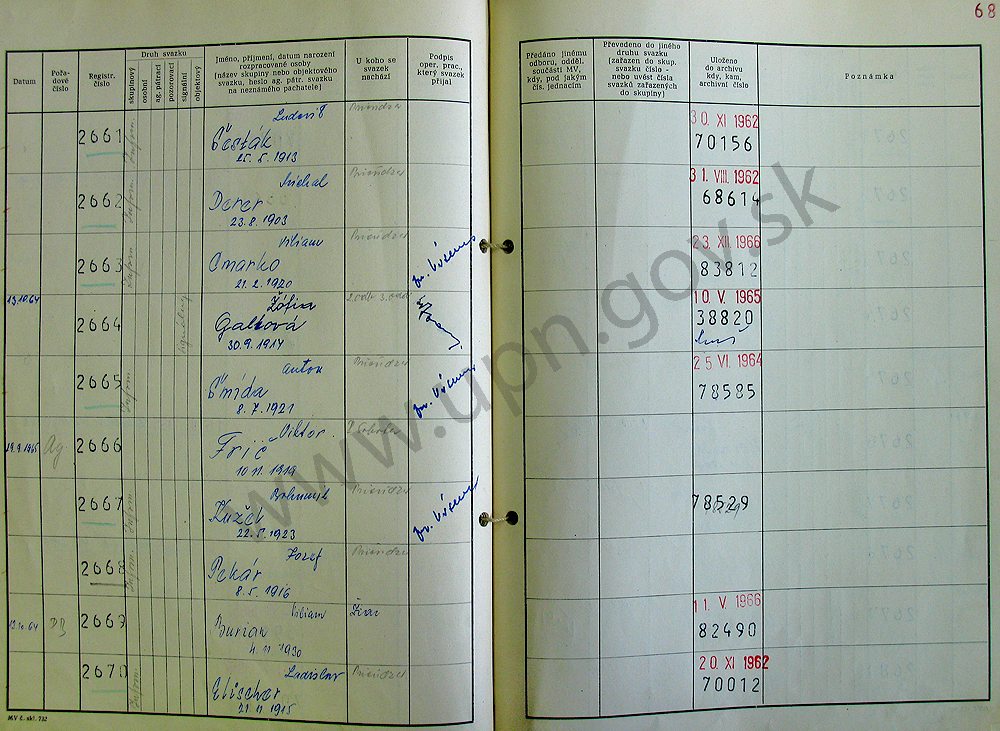 68
Datum
Pořa-
dové
číslo
Registr.
číslo
Druh svazku
skupinový
osobní
ag. pátrací
pozorovací
signální
objektový
Jméno, příjmení, datum narození
rozpracované osoby
(název skupiny nebo objektového
svazku, heslo ag. pátr. svazku
na neznámého pachatele)
U koho se
svazek
nachází
Podpis
oper. prac.,
který svazek
přijal
Předáno jinému
odboru, odděl.
součásti MV,
kdy, pod jakým
čís. jednacím
Převedeno do jiného
druhu svazku
(zařazen do skup.
svazku číslo -
nebo uvést čísla
svazků zařazených
do skupiny)
Uloženo
do archivu
kdy, kam,
archivní číslo
Poznámka
2661
Inform.
Ludovít
Šesták
25. 5. 1913
Prievidza
30. XI 1962
70156
2662
Inform.
Michal
Derer
23. 8. 1903
Prievidza
31. VIII. 1962
68614
2663
Inform.
Viliam
Cmarko
21. 2. 1920
Prievidza
23. XII 1966
83812
13.10.64
2664
Žofia
Galbová
30. 9. 1914
2. odb. 3. odd.
10. V. 1965
38820
2665
Inform
Anton
Šnída
8. 7. 1921
Prievidza
25 VI. 1964
78585
19.9.1965
Ag.
2666
Viktor
Frič
10 11. 1919
2667
Inform
Bohumil
Kužel
22. 5. 1923
Prievidza
78529
2668
Inform.
Jozef
Pekár
8. 5. 1916
Prievidza
13.10.64
2669
Viliam
Burian
4. 11 1930
Žiar
11. V. 1966
82490
2670
Inform.
Ladislav
Elischer
21. 11. 1915
Prievidza
20. XI 1962
70012
MV č. skl. 732
www.upn.gov.sk